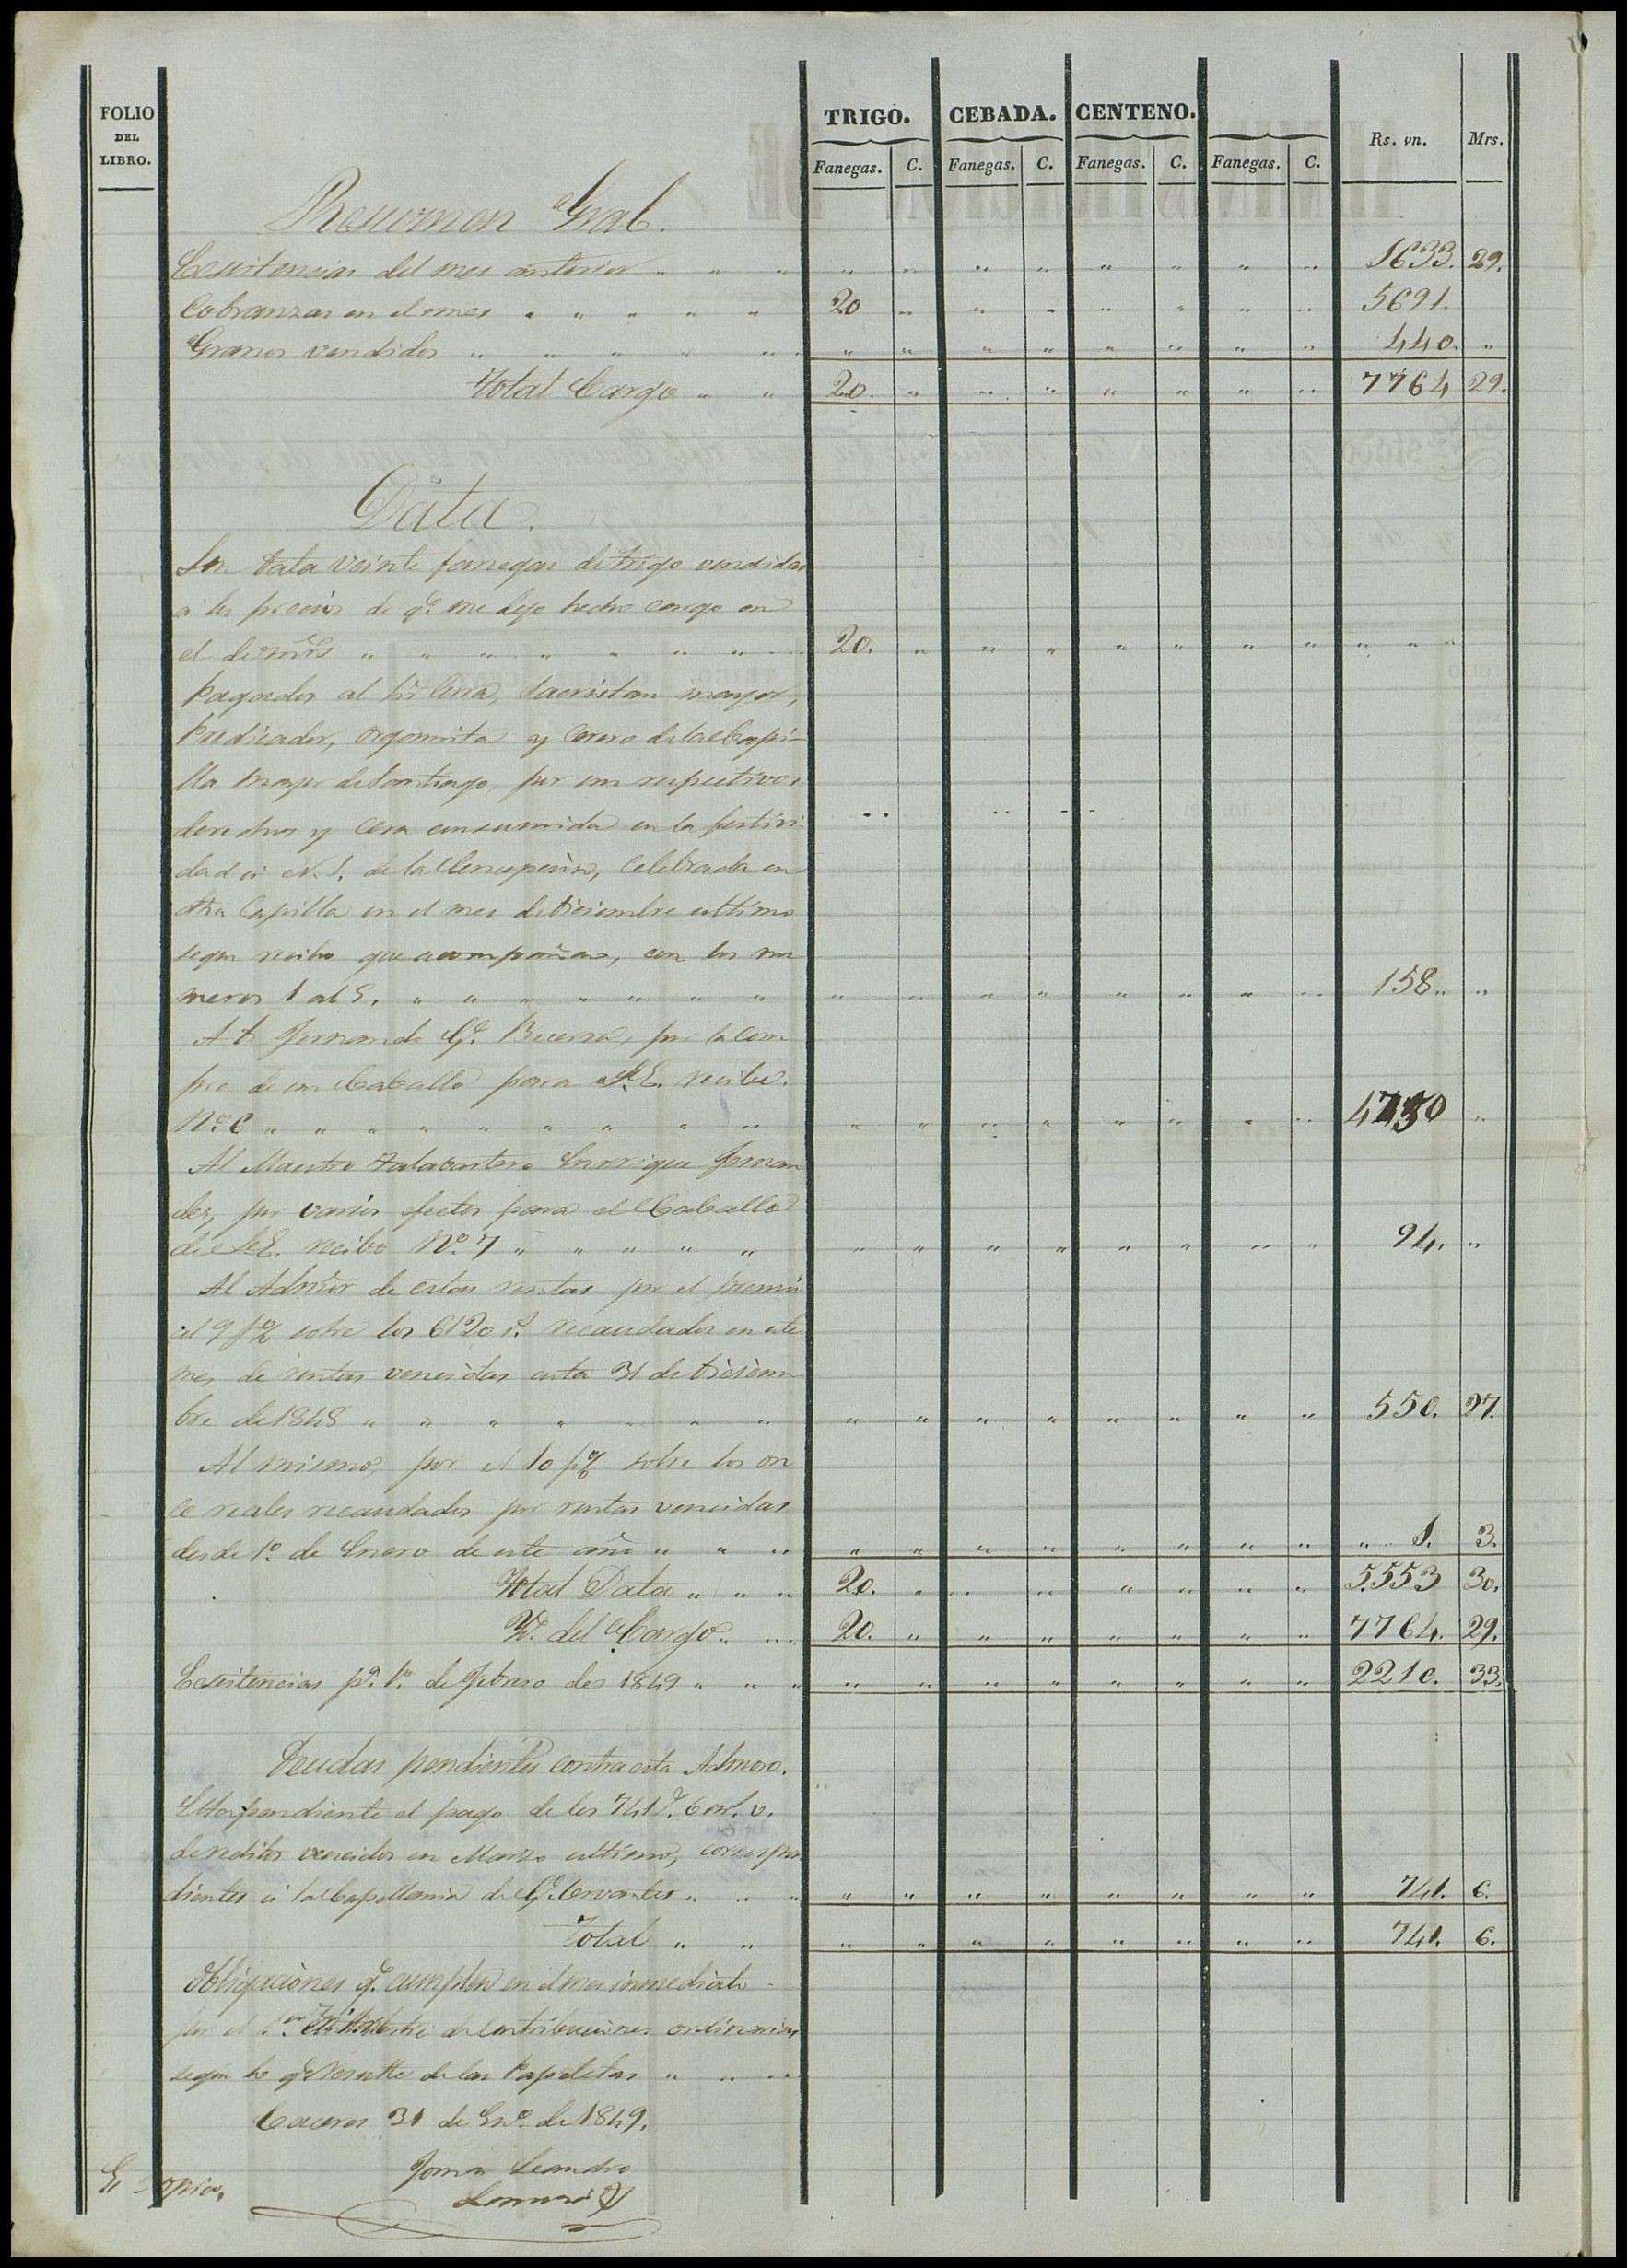 FOLIO DEL LIBRO. TRIGO. CEBADA. CENTENO. Rs. vn. Mrs.
Fanegas. C. Fanegas. C. Fanegas. C. Fanegas. C.
Resumen Gral.
Ecsistencias del mes anterior " " " " " " " " " " " 1633. 29.
Cobranzas en el mes " " " " " 20 " " " " " " " 5691.
Granos vendidos " " " " " " " " " " " " " 440. "
Total Cargo " " 20. " " " " " " " 7764 29.
Data.
Son Data veinte fanegas de trigo vendidas
a los precios de qe. me dejo hecho cargo en
el de mrs " " " " " " " " 20. " " " " " " " " " "
Pagados al Sr Cura, Sacristan mayor,
Predicador, organista y Cerero de la Capi-
lla mayor de Santiago, por sus respectivos
derechos y cera consumida en la festivi-
dad á N. S. de la Concepcion, celebrada en
dha Capilla en el mes de Diciembre ultimo
segun recibos que acompañan, con los nu
meros 1 al 5. " " " " " " " " " " " " " " " 158. "
A D. Fernando Gª. Becerra, por la com
pra de un Caballo para S.E. recibo
Nº 6 " " " " " " " " " " " " " " " " " 4750 "
Al Maestro Talabartero Enrrique Fernan
dez, por varios efectos para el Caballo
de S.E. recibo Nº. 7 " " " " " " " " " " " " " 94. "
Al Admor de estas rentas por el premio
al 9 p% sobre los 6120 rs. recaudados en este
mes de rentas vencidas asta 31 de Diciem
bre de 1848 " " " " " " " " " " " " " " " " 550. 27.
Al mismo, por el 10 p% sobre los on
ce reales recaudados por rentas vencidas
desde 1º. de Enero de este año " " " " " " " " " " " " 1. 3.
Total Data " " " 20. " " " " " " " 5553 30.
Yd. del Cargo " " 20. " " " " " " " 7764. 29.
Ecsistencias pª. 1º. de Febrero de 1849 " " " " " " " " " " " 2210. 33.
Deudas pendientes contra esta Admon.
Esta pendiente el pago de los 741 rs. 6 ms. v.
de reditos vencidos en Marzo ultimo, correspon
dientes á la Capellania de Gª. Cervantes " " " " " " " " " " " 741. 6.
Total " " " " " " " " " " 741. 6.
Obligaciones qe. cumplen en el mes inmediato
por el 1er. Trimestre de contribuciones ordinarias
segun lo qe resulte de las Papeletas " " "
Caceres 31 de Enº. de 1849.
Es copia.
Leandro